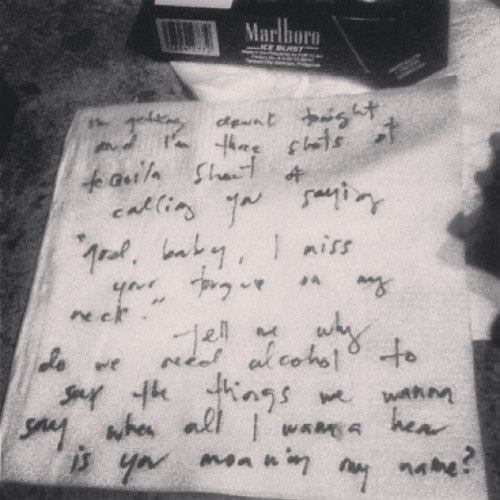 Marlboro
ICE BLAST
im getting drunk tonight
and I'm three shots of
tequila short of
calling you saying
"god, baby, I miss
your tongue on my
neck."
-tell me why
do we need alcohol to
say the things we wanna
say when all I wanna hear
is you moaning my name?